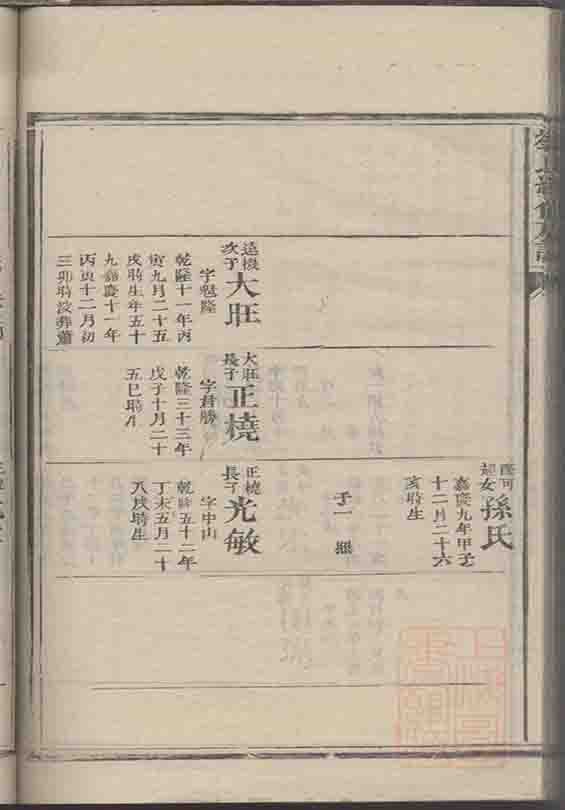 遠機
次子
大旺
字魁隆
乾隆十一年丙
寅九月二十五
戌時生年五十
九嘉慶十一年
丙寅十二月初
三卯時歿葬蕭
大旺
長子
正橈
字君勝
乾隆三十三年
戊子十月二十
五巳時生
妣女
孫氏
嘉慶九年甲子
十二月二十六
亥時生
子一
正橈
長子
光敏
字中山
乾隆五十二年
丁未五月二十
八戌時生